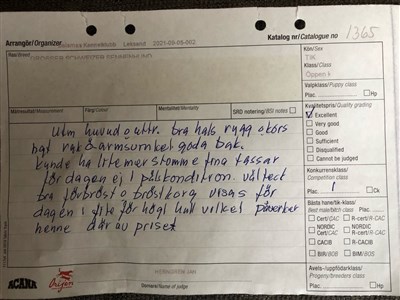 Arrangör/Organizer
Leksand 2021-09-05-002
Katalog nr/Catalogue no 1365
Kön/Sex
TIK
Klass/Class
Öppen k
Valpklass/Puppy class
Plac. Hp
Mankmått Färg/Colour Mentalitet/Mentality SRD notering/BSI notes
Kvalitetspris/Quality grading
Excellent
Very good
Good
Sufficient
Disqualified
Cannot be judged
Utm huvud o uttr. bra hals rygg o kors
ngt rak överarmsvinkel goda bak.
kunde ha lite mer stomme fina tassar
för dagen ej i pälskondition. vältect
bra förbröst o bröstkorg visas för
dagen i lite för högt hull vilket påverkar
henne därav priset
Konkurrensklass/
Competition class
Plac. 1 Ck
Bästa hane/tik-klass/
Best male/bitch class Plac.
Cert/CAC R-cert/R-CAC
NORDIC Cert/CAC NORDIC R-cert/R-CAC
CACIB R-CACIB
BIR/BOB BIM/BOS
Avels-/uppfödarklass/
Progeny/breeders class
Plac. Hp
ACANA Orijen
Domare/Name of judge